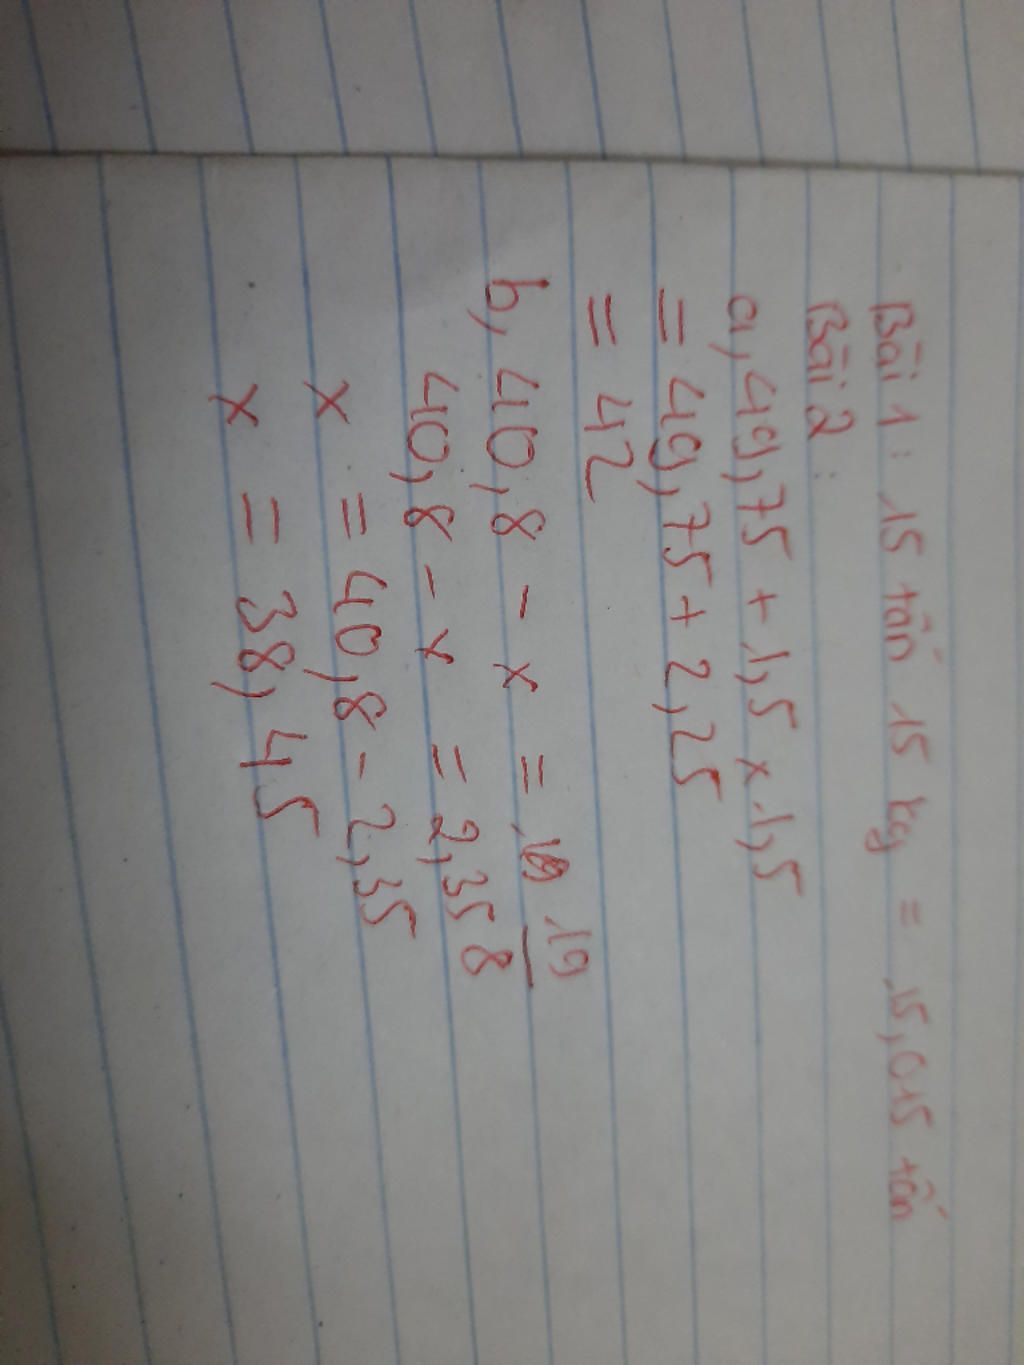 Bài 1: 15 tấn 15 kg = 15,015 tấn
Bài 2:
a, 49,75 + 1,5 x 1,5
= 49,75 + 2,25
= 42
b, 40,8 - x = 19
8
40,8 - x = 2,35
x = 40,8 - 2,35
x = 38,45